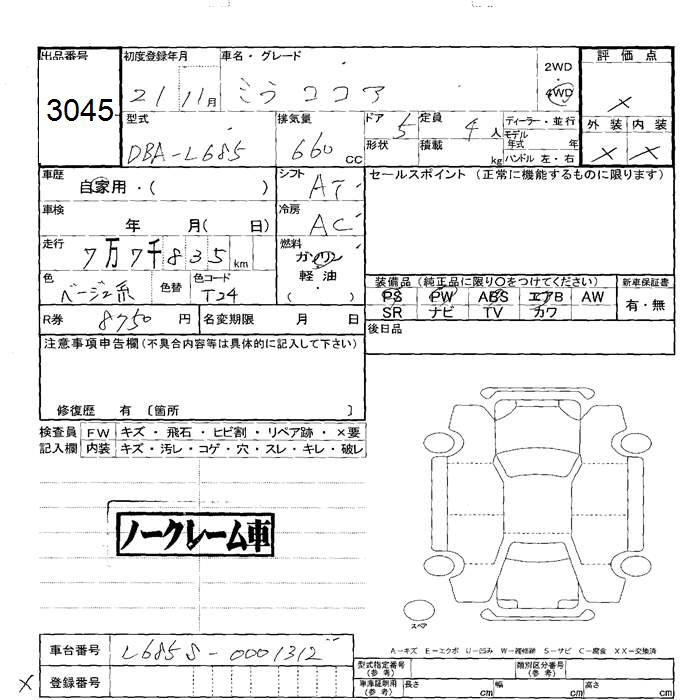 出品番号 初度登録年月 車名・グレード 2WD 評価点
3045 21 11月 ミラ ココア 4WD ×
型式 排気量 ドア 5 定員 4人 ディーラー・並行 外装 内装
DBA-L685 660 cc 形状 積載 kg モデル年式 年 × ×
ハンドル 左・右
車歴 自家用・( ) シフト AT セールスポイント (正常に機能するものに限ります)
車検 年 月( 日) 冷房 AC
走行 7万7千835km 燃料 ガソリン
軽油
( )
色 ベージュ系 色替 色コード T24 装備品 (純正品に限り○をつけてください) 新車保証書
PS PW ABS エアB AW 有・無
SR ナビ TV カワ
R券 8750円 名変期限 月 日 後日品
注意事項申告欄(不具合内容等は具体的に記入して下さい)
修復歴 有 〔箇所 〕
検査員 FW キズ・飛石・ヒビ割・リペア跡・×要
記入欄 内装 キズ・汚レ・コゲ・穴・スレ・キレ・破レ
ノークレーム車
スペア
A-キズ E-エクボ U-凹み W-補修跡 S-サビ C-腐食 XX-交換済
車台番号 L685S-0001312
型式指定番号(参考) 類別区分番号(参考)
× 登録番号
車庫証明用(参考) 長さ cm 幅 cm 高さ cm